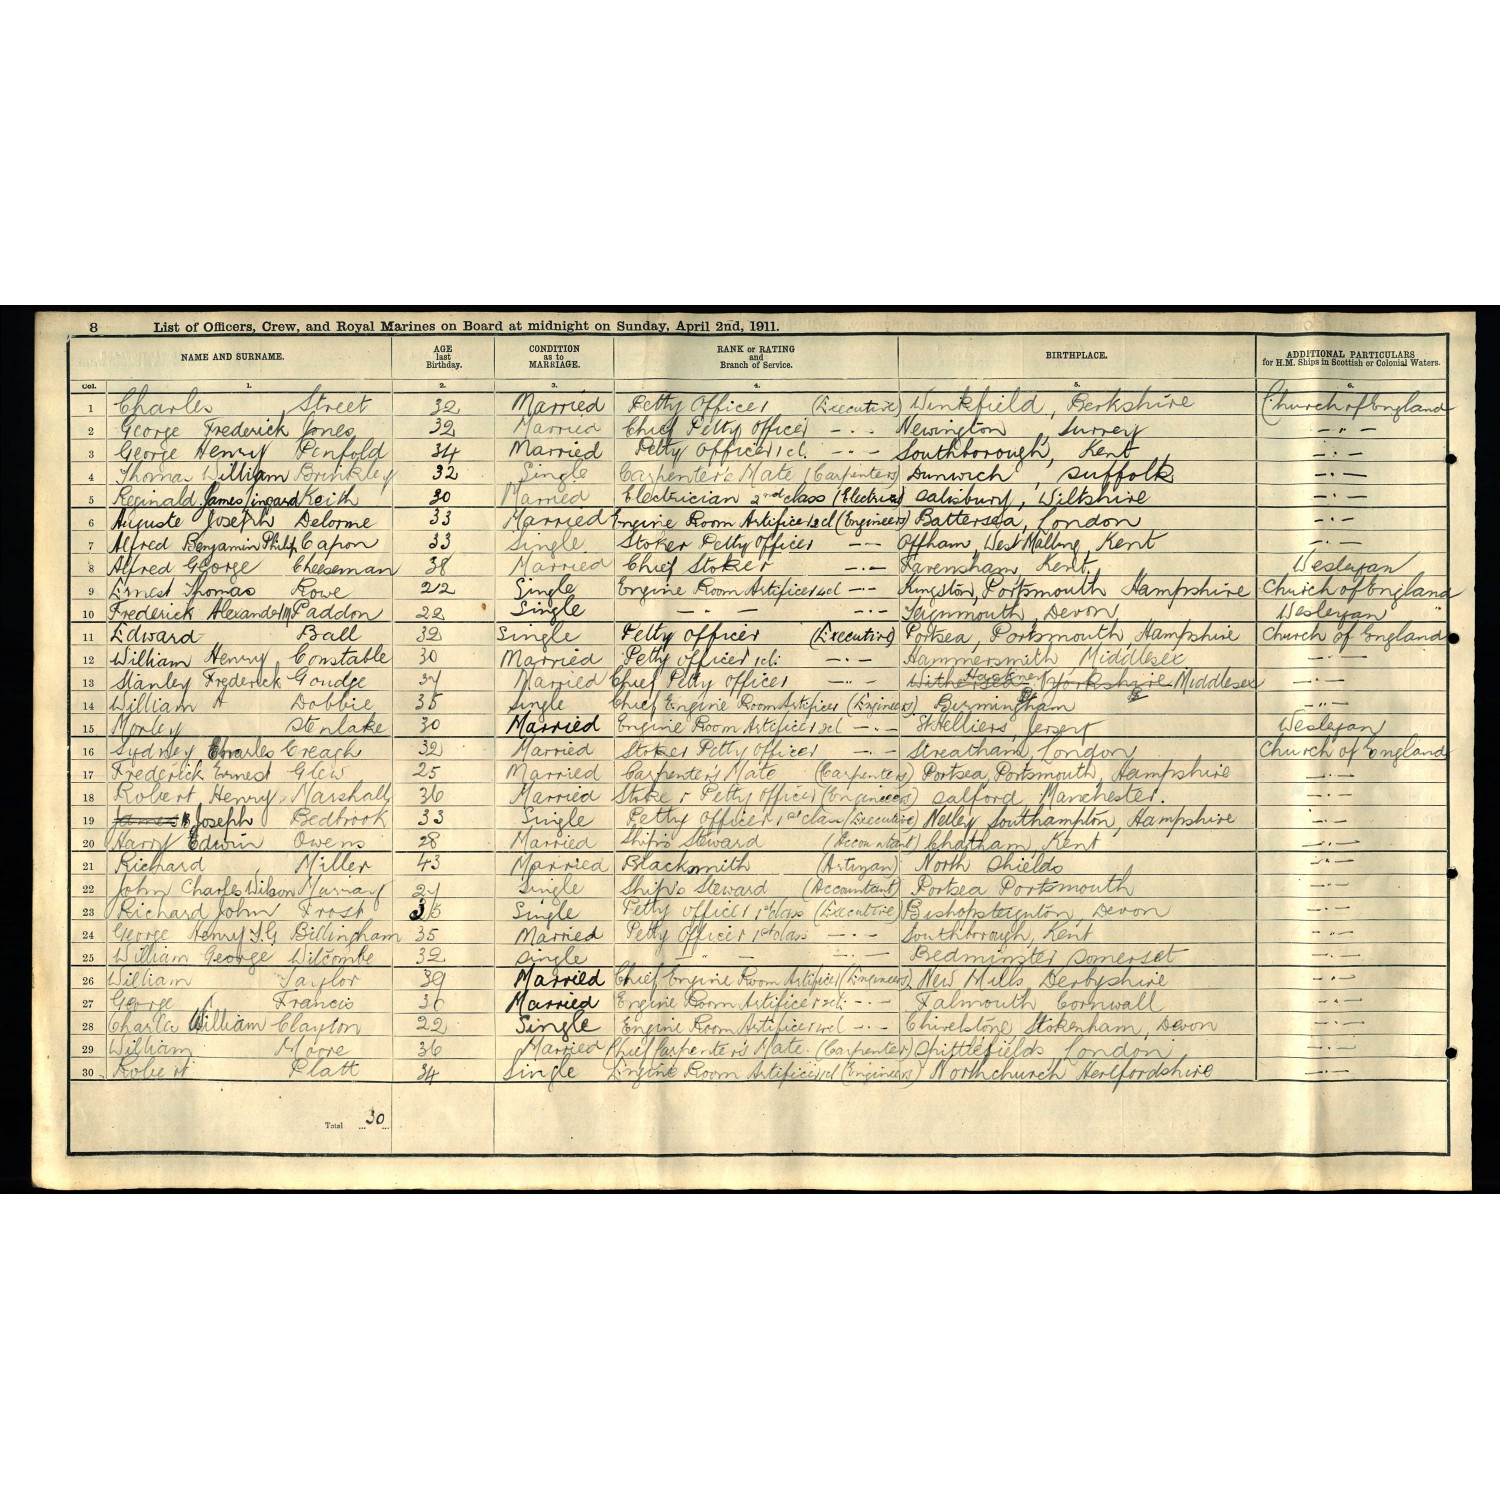 8 List of Officers, Crew, and Royal Marines on Board at midnight on Sunday, April 2nd, 1911.
NAME AND SURNAME. AGE last Birthday. CONDITION as to MARRIAGE. RANK or RATING and Branch of Service. BIRTHPLACE. ADDITIONAL PARTICULARS for H.M. Ships in Scottish or Colonial Waters.
Col. 1. 2. 3. 4. 5. 6.
1 Charles Street 32 Married Petty Officer (Executive) Winkfield, Berkshire Church of England
2 George Frederick Jones 32 Married Chief Petty Officer — · — Newington, Surrey — " —
3 George Henry Penfold 34 Married Petty Officer 1 cl. — · — Southborough, Kent — · —
4 Thomas William Brinkley 32 Single Carpenter's Mate (Carpenters) Dunwich, Suffolk — · —
5 Reginald James Keith 30 Married Electrician 2nd class (Electrical) Salisbury, Wiltshire — · —
6 Auguste Joseph Delorme 33 Married Engine Room Artificer 2cl (Engineers) Battersea, London — · —
7 Alfred Benjamin Philip Capon 33 Single Stoker Petty Officer — · — Offham, West Malling, Kent — · —
8 Alfred George Cheeseman 38 Married Chief Stoker — · — Faversham Kent. Wesleyan
9 Ernest Thomas Rowe 22 Single Engine Room Artificer 4cl — · — Kingston, Portsmouth Hampshire Church of England
10 Frederick Alexander Paddon 22 Single — · — — · — Teignmouth, Devon Wesleyan "
11 Edward Ball 32 Single Petty Officer (Executive) Portsea, Portsmouth, Hampshire Church of England
12 William Henry Constable 30 Married Petty Officer 1cl: — · — Hammersmith Middlesex — · —
13 Stanley Frederick Goudge 37 Married Chief Petty Officer — " — Withersea Hackney Yorkshire Middlesex — · —
14 William A Dobbie 35 Single Chief Engine Room Artificer (Engineers) Birmingham — " —
15 Morley Stenlake 30 Married Engine Room Artificer 2cl — · — St Helliers, Jersey Wesleyan
16 Sydney Charles Creagh 32 Married Stoker Petty Officer — · — Streatham, London Church of England
17 Frederick Ernest Glew 25 Married Carpenter's Mate (Carpenters) Portsea, Portsmouth, Hampshire — · —
18 Robert Henry Marshall 36 Married Stoker Petty Officer (Engineers) Salford, Manchester. — · —
19 James Joseph Bedbrook 33 Single Petty Officer 1st class (Executive) Netley Southampton, Hampshire — · —
20 Harry Edwin Owens 28 Married Ship's Steward (Accountant) Chatham, Kent — · —
21 Richard Miller 43 Married Blacksmith (Artizan) North Shields — " —
22 John Charles Wilson Murray 27 Single Ship's Steward (Accountant) Portsea Portsmouth — · —
23 Richard John Frost Single Petty Officer 1st class (Executive) Bishopsteignton, Devon — · —
24 George Henry Billingham 35 Married Petty Officer 1st class — · — Southborough, Kent — " —
25 William George Wilcombe 32 Single — " — Bedminster Somerset — · —
26 William Taylor 39 Married Chief Engine Room Artificer (Engineers) New Mills Derbyshire — · —
27 George Francis 36 Married Engine Room Artificer 2cl: — · — Falmouth Cornwall — " —
28 Charlie William Clayton 22 Single Engine Room Artificer 4cl — · — Chivelstone Stokenham, Devon — · —
29 William Moore 36 Married Chief Carpenter's Mate. (Carpenter) Spittlefields, London — · —
30 Robert Platt 34 Single Engine Room Artificer (Engineers) Northchurch Hertfordshire — · —
Total 30